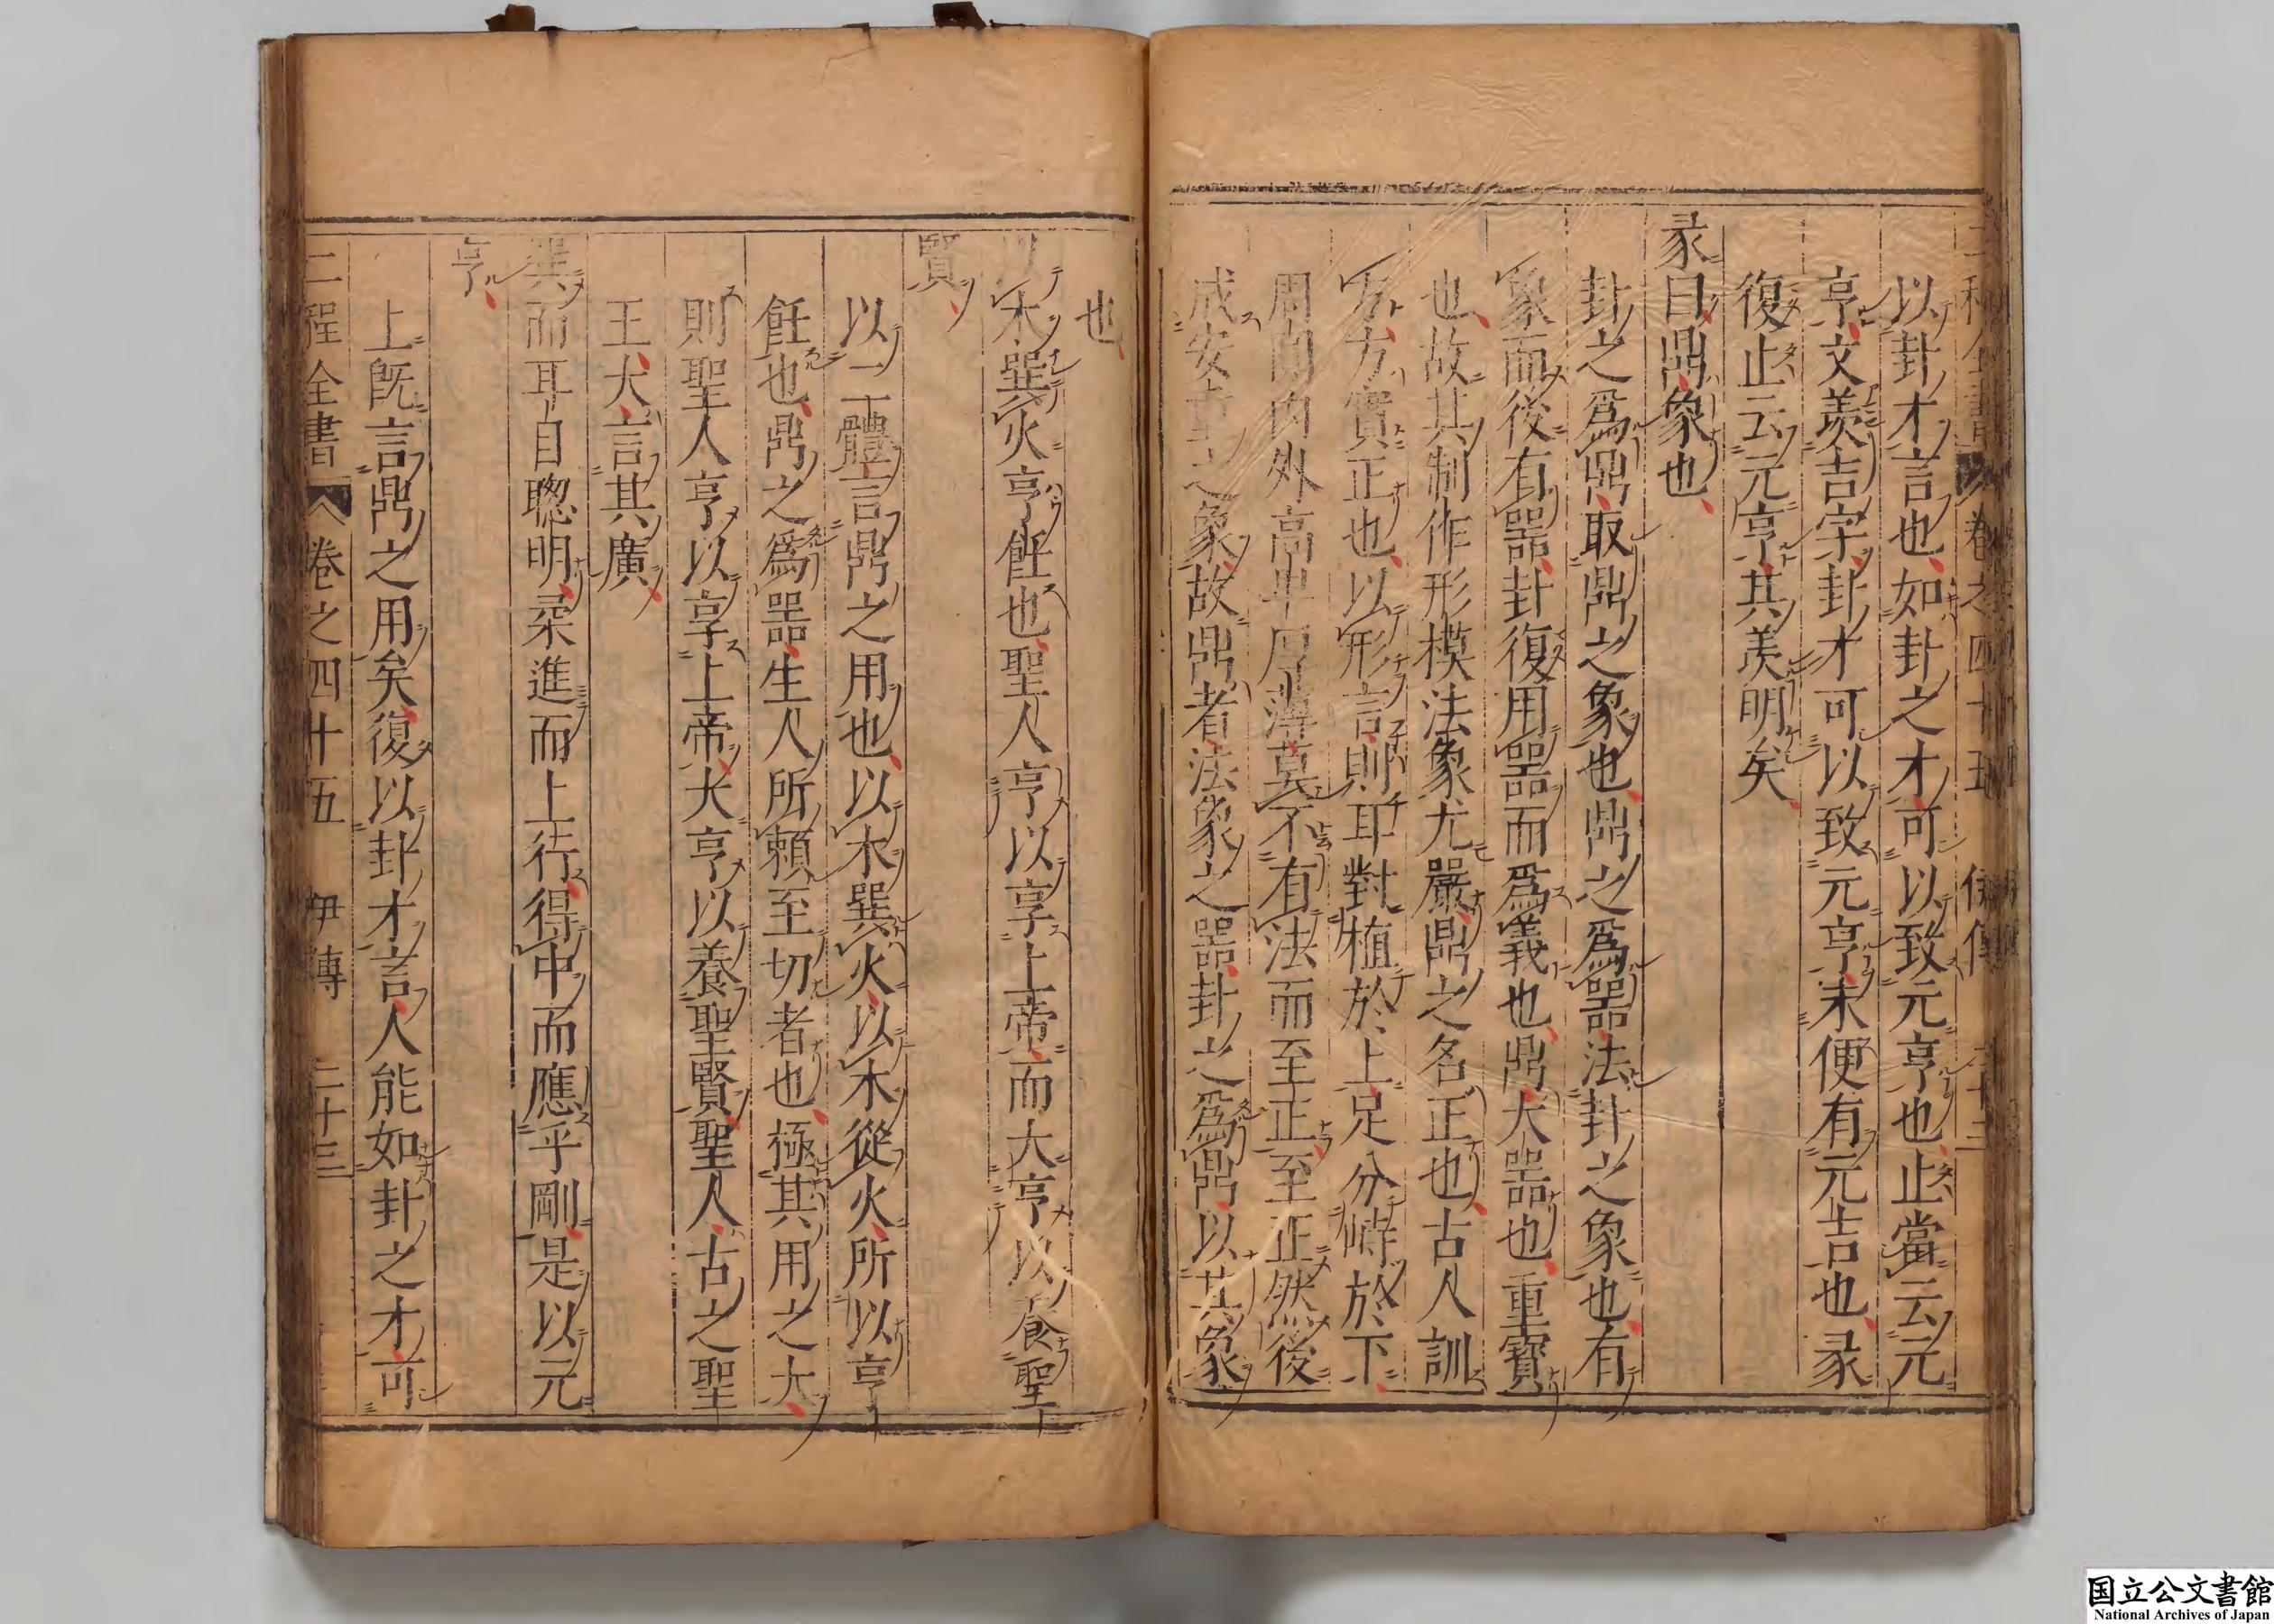 以卦才言也如卦之才可以致元亨也止當云元
亨文羨吉字卦才可以致元亨未便有元吉也彖
復止云元亨其羨明矣
彖曰鼎象也
卦之爲鼎取鼎之象也鼎之爲器法卦之象也有
象而後有器卦復用器而爲義也鼎大器也重寶
也故其制作形模法象尤嚴鼎之名正也古人訓
方方實正也以形言則耳對植於上足分峙於下
周圓內外高卑厚薄莫不有法而至正至正然後
成安重之象故鼎者法象之器卦之爲鼎以其象
也
以木巽火亨飪也聖人亨以享上帝而大亨以養聖
賢
以二體言鼎之用也以木巽火以木從火所以亨
飪也鼎之爲器生人所賴至切者也極其用之大
則聖人亨以享上帝大亨以養聖賢聖人古之聖
王大言其廣
巽而耳目聰明柔進而上行得中而應乎剛是以元
亨
上既言鼎之用矣復以卦才言人能如卦之才可
二程全書 卷之四十五 伊傳 二十三
国立公文書館
National Archives of Japan